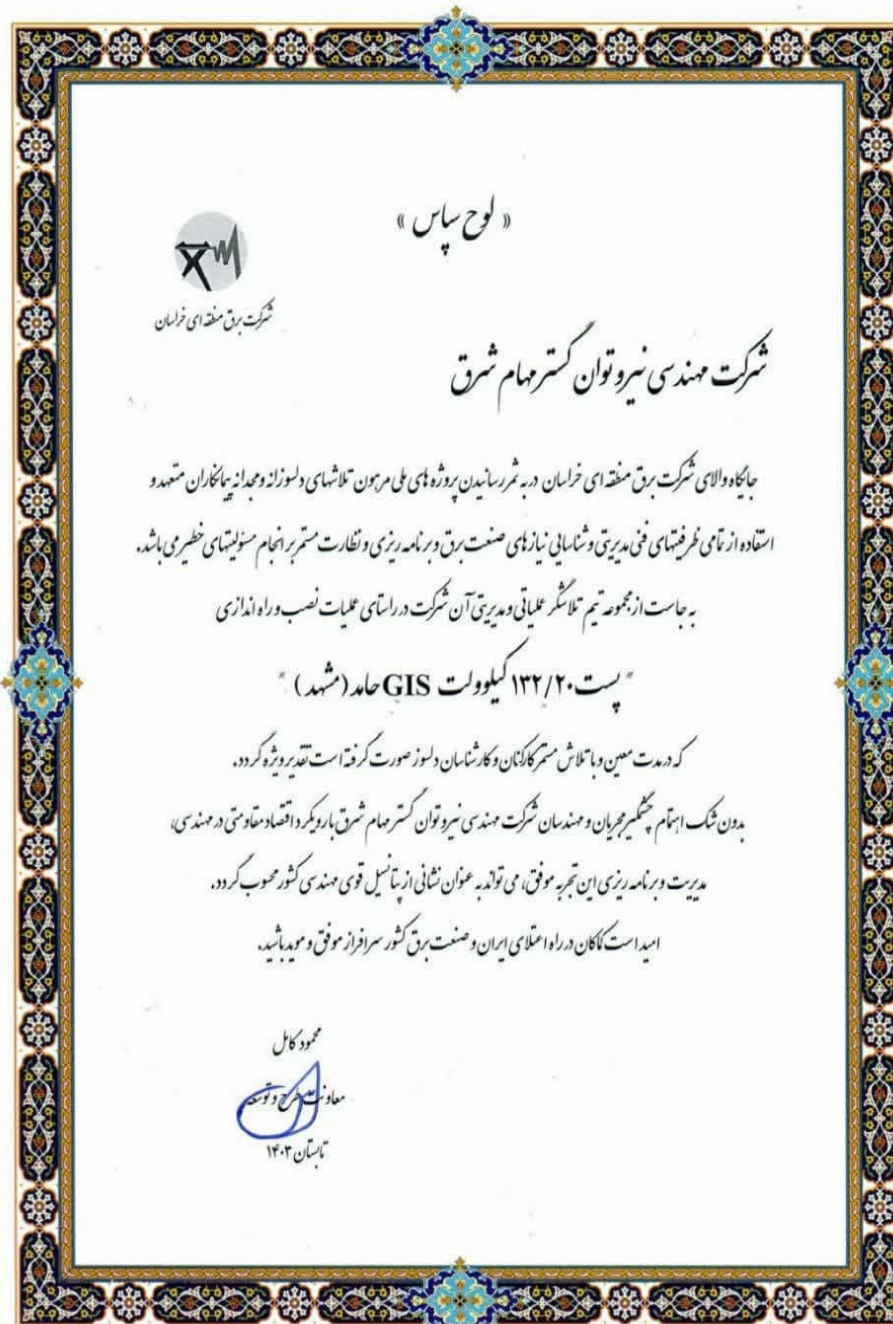 « لوح سپاس »
شرکت برق منطقه ای خراسان
شرکت مهندسی نیرو توان گستر مهام شرق
جایگاه والای شرکت برق منطقه ای خراسان در به ثمر رسانیدن پروژه های ملی مرهون تلاشهای دلسوزانه و مجدانه پیمانکاران متعهد و
استفاده از تمامی ظرفیتهای فنی مدیریتی و شناسایی نیازهای صنعت برق و برنامه ریزی و نظارت مستمر بر انجام مسئولیتهای خطیر می باشد.
به جاست از مجموعه تیم تلاشگر عملیاتی و مدیریتی آن شرکت در راستای عملیات نصب و راه اندازی
" پست ۱۳۲/۲۰ کیلوولت GIS حامد (مشهد) "
که در مدت معین و با تلاش مستمر کارکنان و کارشناسان دلسوز صورت گرفته است تقدیر ویژه گردد.
بدون شک اهتمام چشمگیر مجریان و مهندسان شرکت مهندسی نیرو توان گستر مهام شرق با رویکرد اقتصاد مقاومتی در مهندسی،
مدیریت و برنامه ریزی این تجربه موفق، می تواند به عنوان نشانی از پتانسیل قوی مهندسی کشور محسوب گردد.
امید است کماکان در راه اعتلای ایران و صنعت برق کشور سرافراز موفق و موید باشید.
محمود کامل
معاونت طرح و توسعه
تابستان ۱۴۰۳